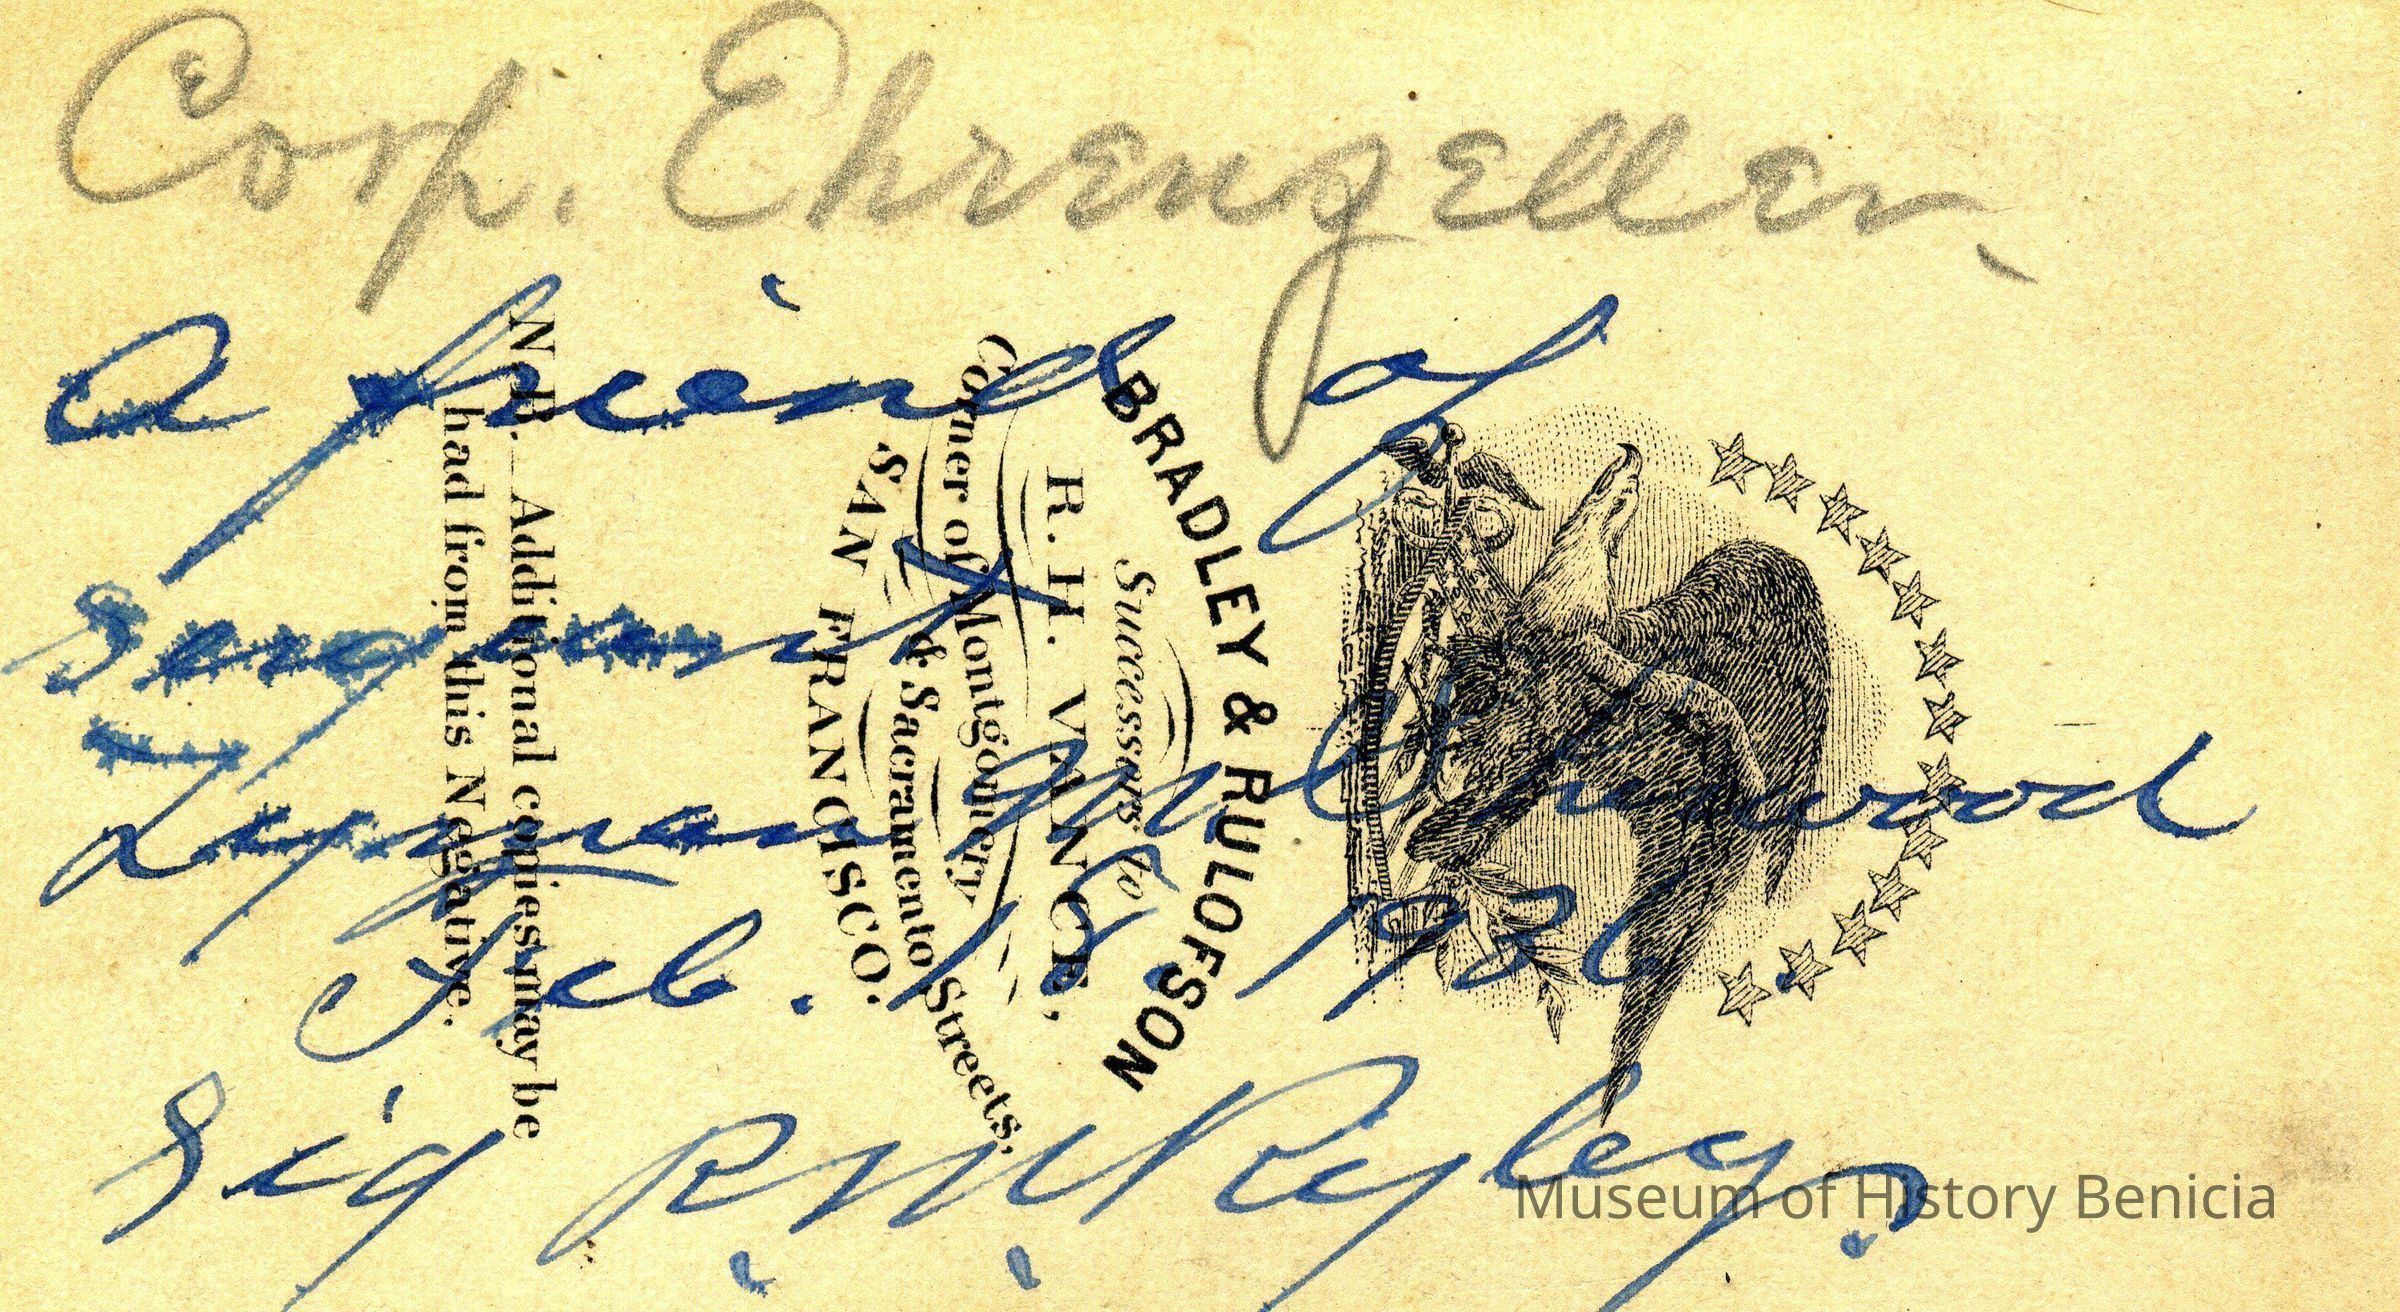 Corp. Ehrengeller.
A friend of
Sergeant
Lyman M Culverwood
Feb. 18. 1926.
Sig R. M. Ryley.
BRADLEY & RULOFSON
Successors to
R. H. VANCE,
Corner of Montgomery
& Sacramento Streets,
SAN FRANCISCO.
N. B. Additional copies may be
had from this Negative.
Museum of History Benicia